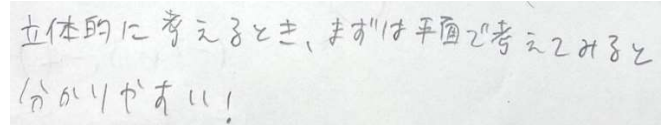 立体的に考えるとき、まずは平面で考えてみると
分かりやすい!